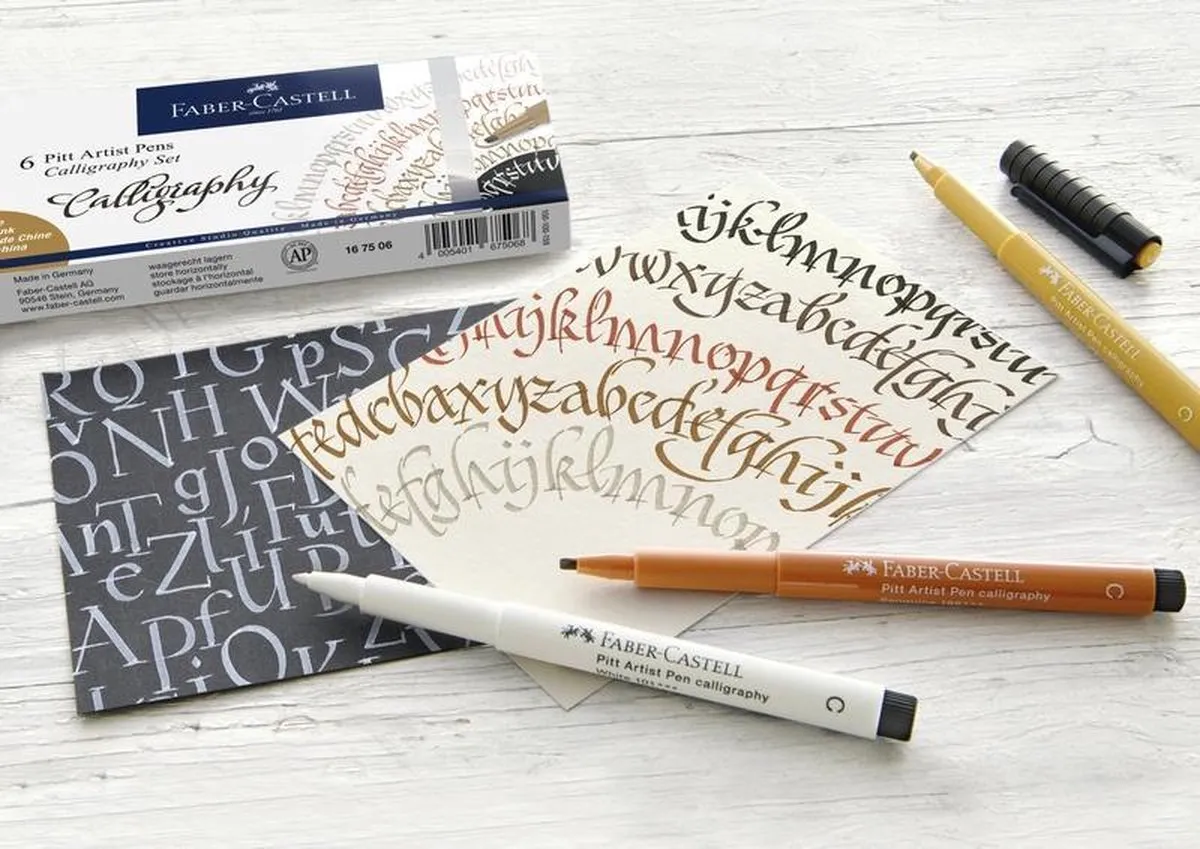 FABER-CASTELL
since 1761
6 Pitt Artist Pens
Calligraphy Set
Calligraphy
Creative Studio Quality · Made in Germany
Made in Germany
Faber-Castell AG
90546 Stein, Germany
www.faber-castell.com
waagerecht lagern
store horizontally
stockage à l'horizontal
guardar horizontalmente
AP
16 75 06
4 005401 675068
ijklmnopqrstu
vwxyzabcdefghi
hijklmnopqrstuv
fedcbaxyzabcdefghijk
defghijklmnop
FABER-CASTELL
Pitt Artist Pen calligraphy
C
FABER-CASTELL
Pitt Artist Pen calligraphy
C
FABER-CASTELL
Pitt Artist Pen calligraphy
White
C